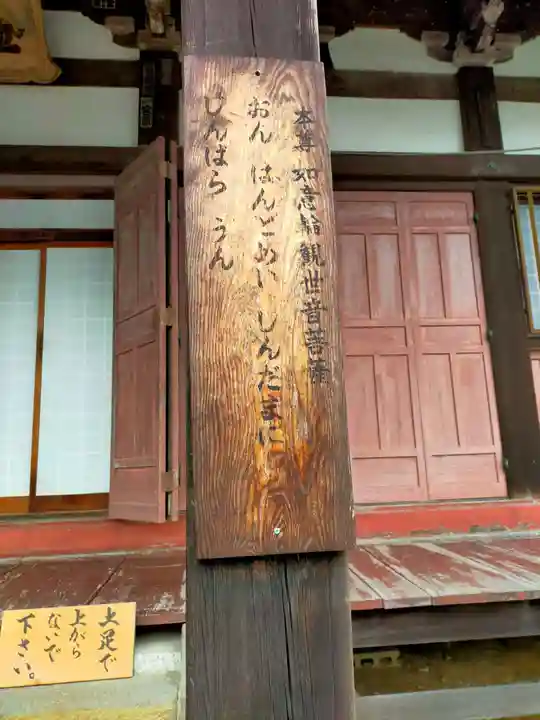 本尊 如意輪観世音菩薩
おん はんどめい しんだまに
じんばら うん
土足で
上がら
ないで
下さい。